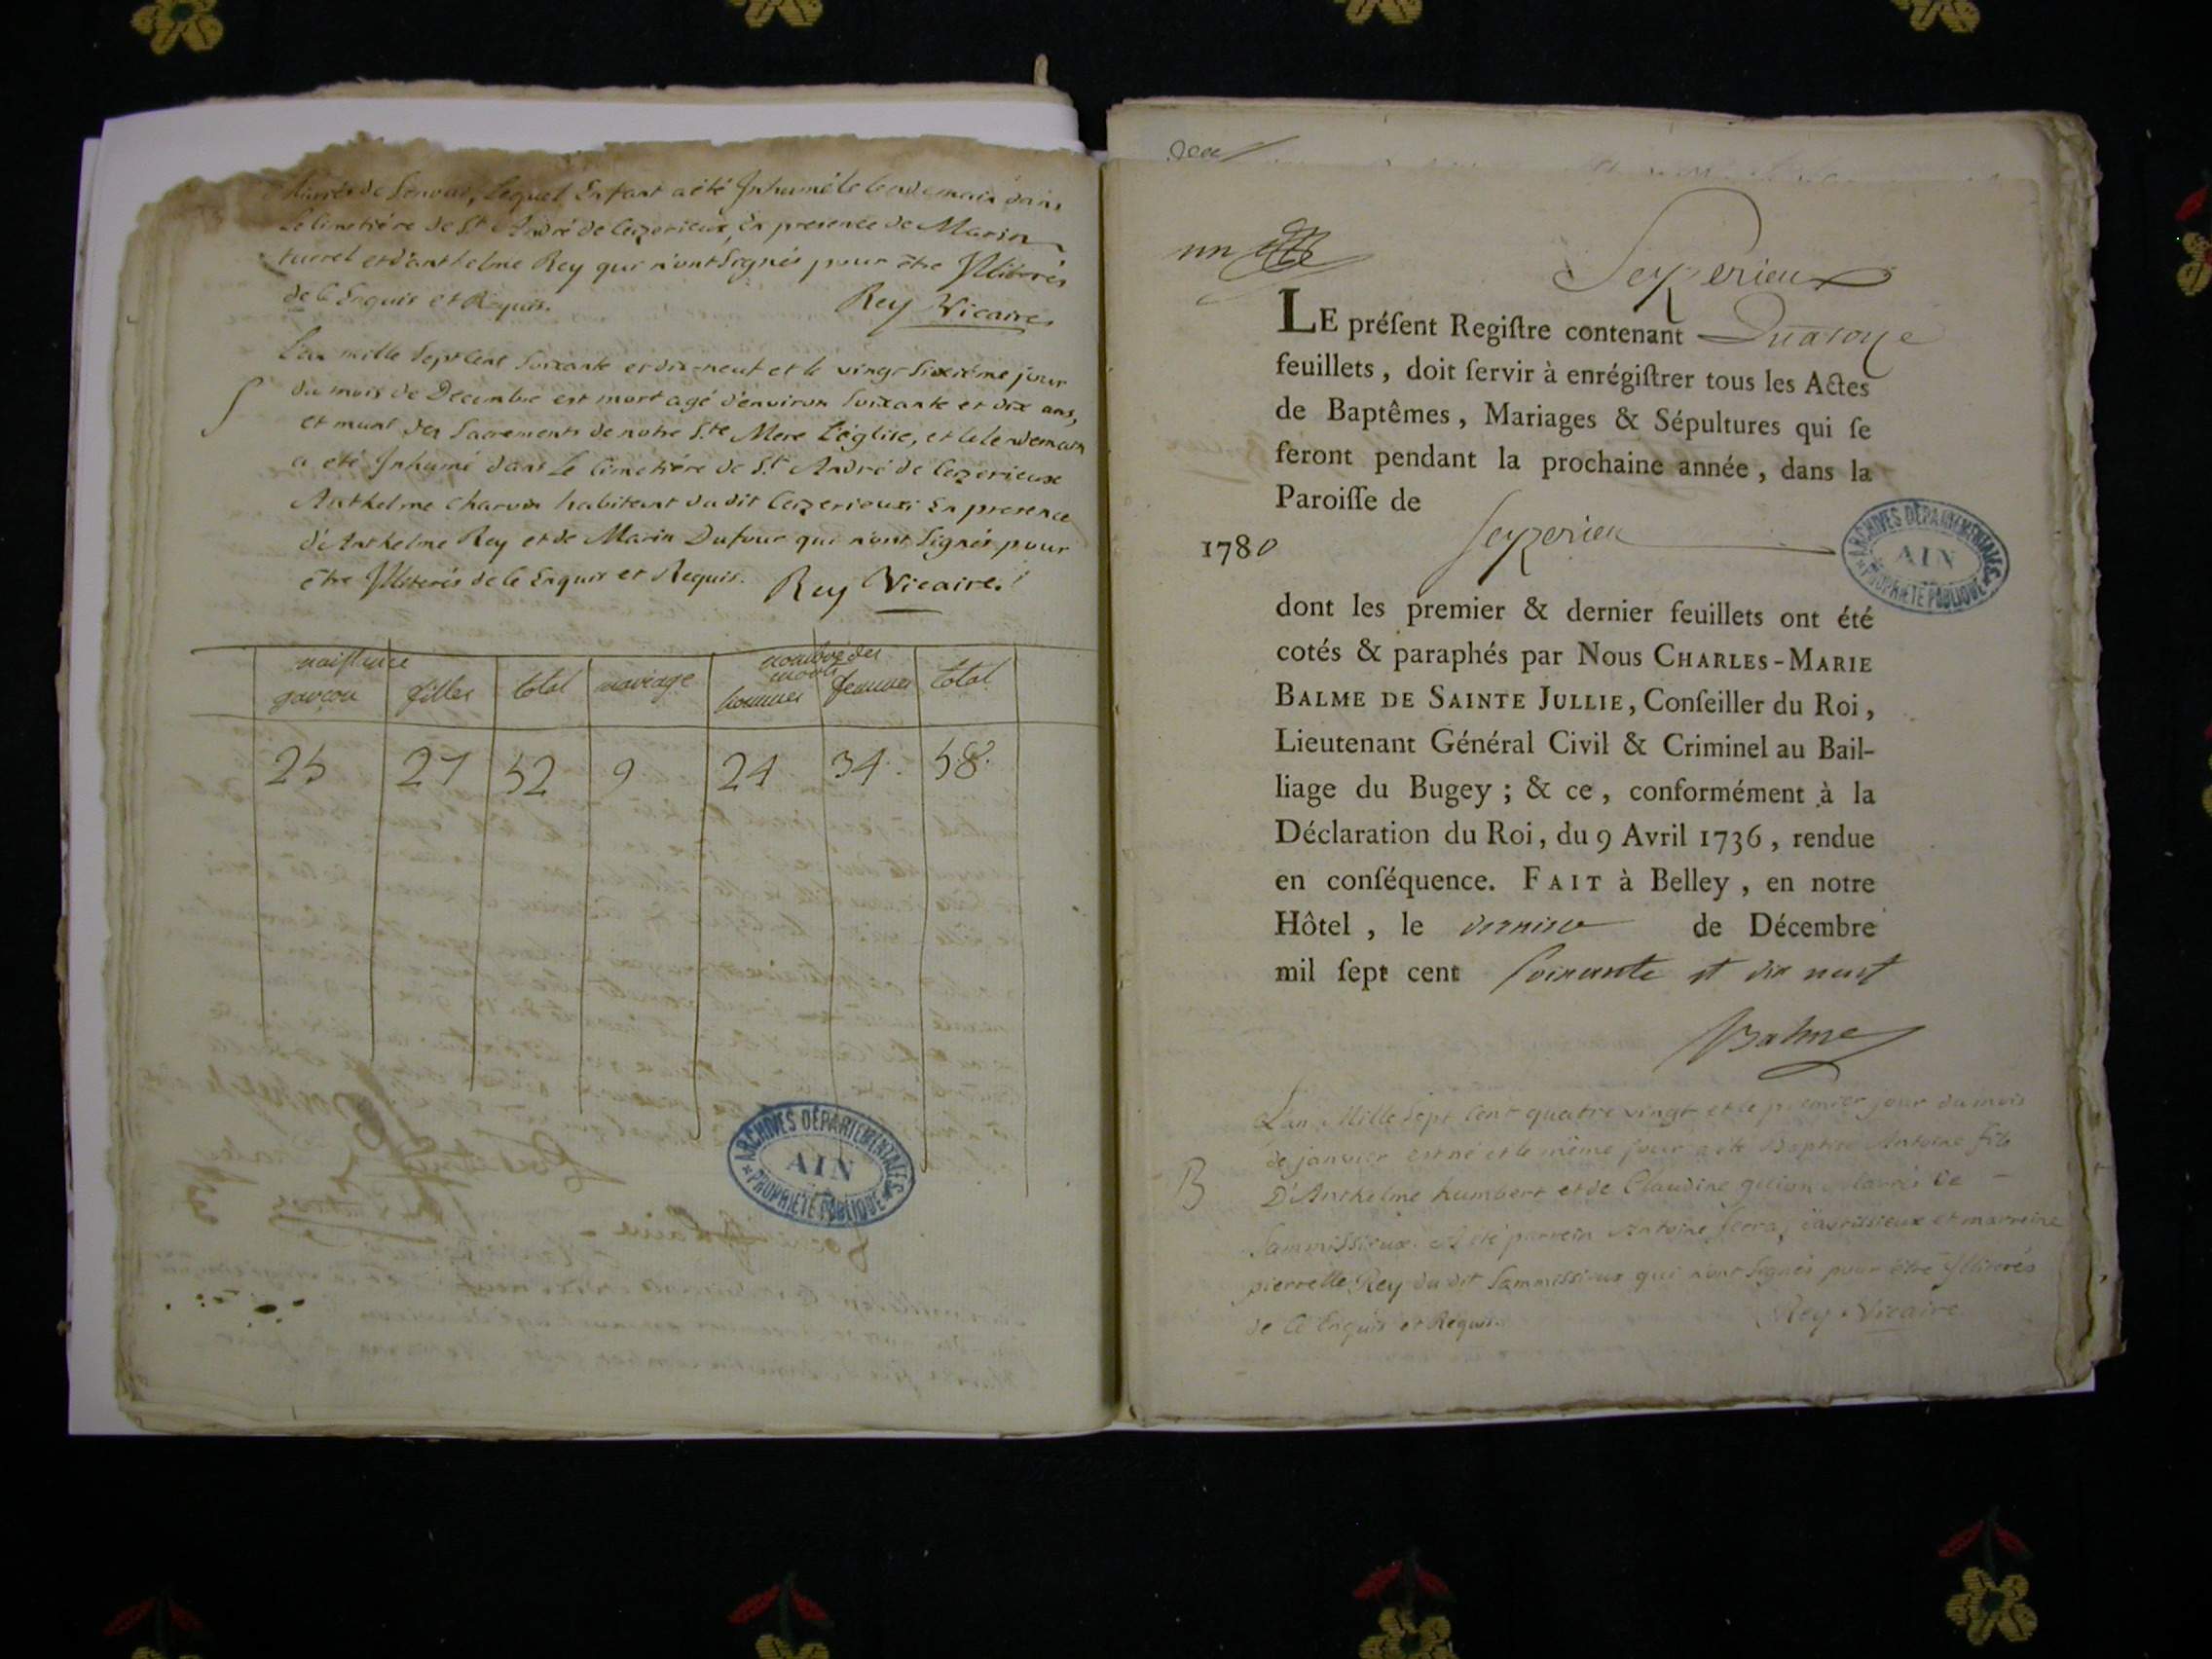 mariés de Lenvoui, Lequel Enfant a été Inhumé le lendemain dans
Le Cimetiére de St André de Ceyzerieux, En presence de Marin
tuerel et d'anthelme Rey qui n'ont Signés pour être Jlliterés
de Ce Enquis et Requis. Rey Vicaire
L'an mille Sept Cent Soixante et dix-neuf et le vingt Sixiéme jour
S du mois de Decembre est mort agé d'environ Soixante et dix ans,
et muni des Sacrements de notre Ste Mere L'église, et le lendemain
a été Inhumé dans Le Cimetiére de St André de Ceyzerieux
Anthelme Charvin habitant dudit Ceyzerieux En presence
d'Anthelme Rey et de Marin Dufour qui n'ont Signés pour
être Jlliterés de Ce Enquis et Requis. Rey Vicaire.
naissance nombre des morts
garçon filles total mariage hommes femmes total
25 27 52 9 24 34. 58.
ARCHIVES DÉPARTEMENTALES
AIN
PROPRIÉTÉ PUBLIQUE
un
Seyzerieu
LE préſent Regiſtre contenant Quatorze
feuillets, doit ſervir à enrégiſtrer tous les Actes
de Baptêmes, Mariages & Sépultures qui ſe
feront pendant la prochaine année, dans la
Paroiſſe de
1780 Seyzerieu
ARCHIVES DÉPARTEMENTALES
AIN
PROPRIÉTÉ PUBLIQUE
dont les premier & dernier feuillets ont été
cotés & paraphés par Nous CHARLES-MARIE
BALME DE SAINTE JULLIE, Conſeiller du Roi,
Lieutenant Général Civil & Criminel au Bail-
liage du Bugey ; & ce, conformément à la
Déclaration du Roi, du 9 Avril 1736, rendue
en conſéquence. FAIT à Belley, en notre
Hôtel, le dernier de Décembre
mil ſept cent soixante et dix neuf
Balme
L'an Mille Sept Cent quatre vingt et le premier jour du mois
de janvier est né et le même jour a été Baptisé Antoine fils
B D'Anthelme humbert et de Claudine Mariés de
Sammissieux. A été parrein Antoine et marreine
pierrette Rey du dit Sammissieux qui n'ont Signés pour être Jlliterés
de Ce Enquis et Requis. Rey Vicaire